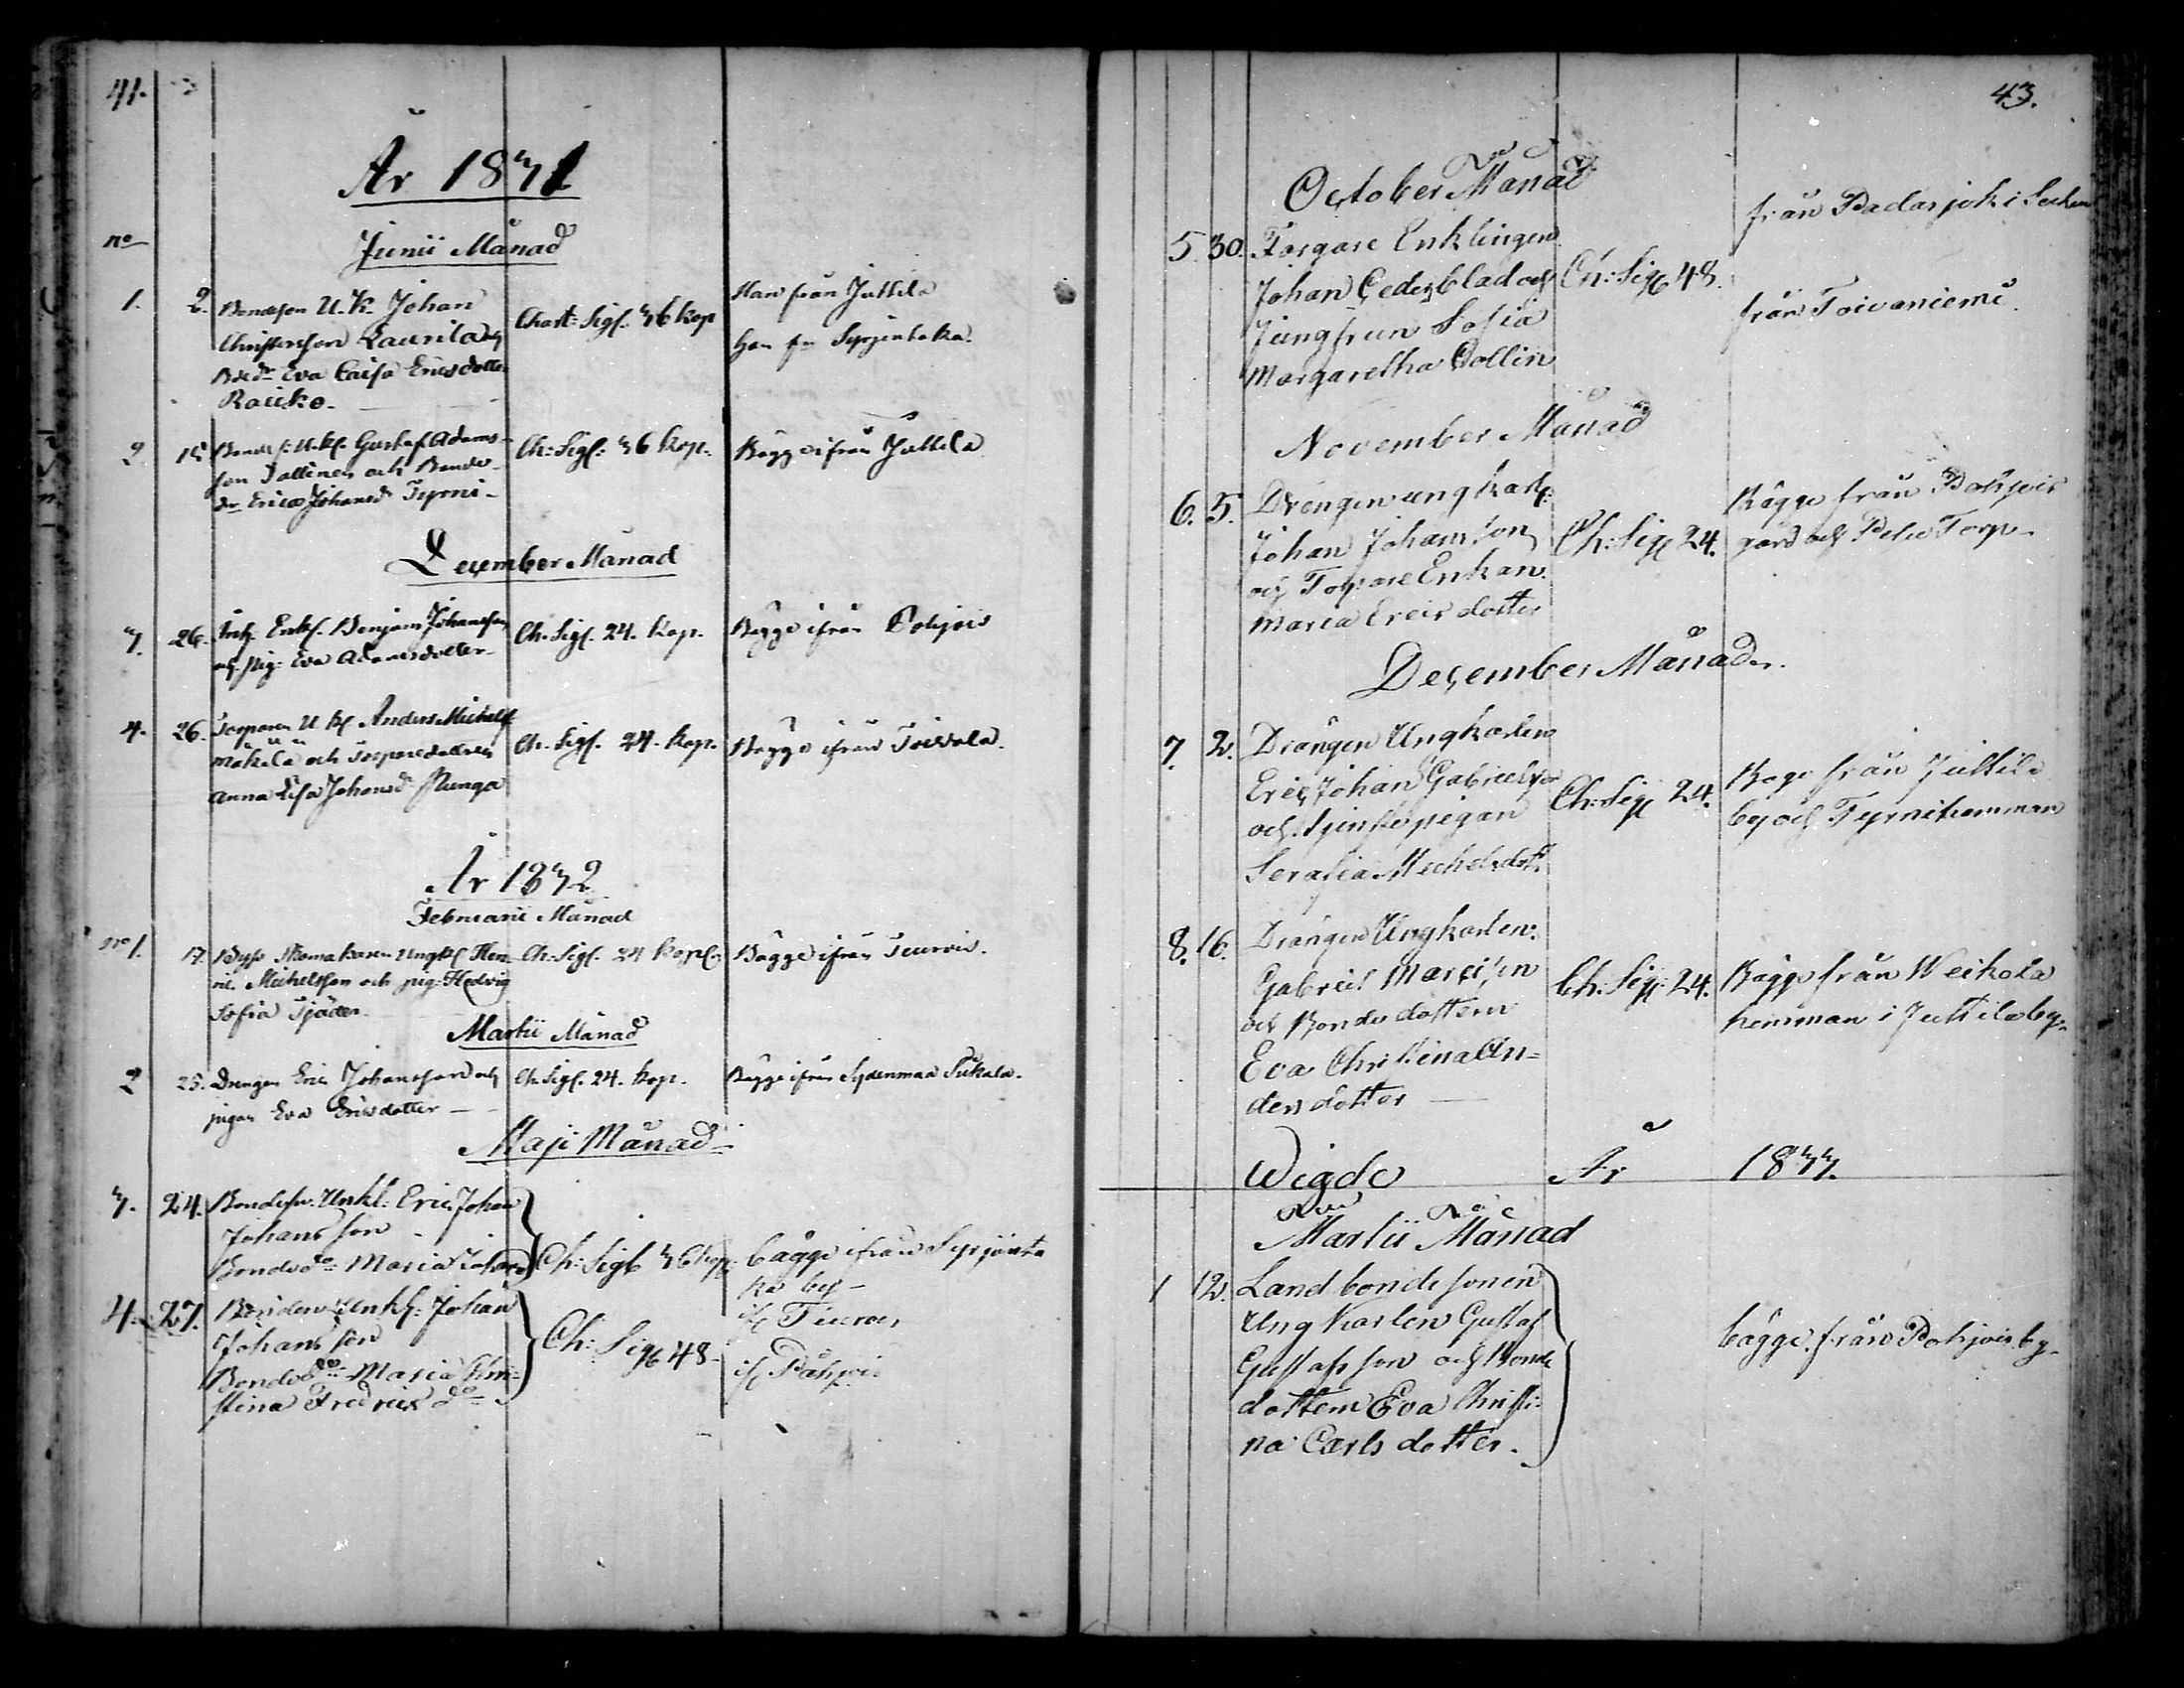 41.
År 1831
no
Junii Månad
1. 2. Bondeson U.K. Johan
Christersson Laurila och
Bdedr Eva Caisa Ericsdotter
Rauko.
Chart: Sigf. 36 kop
Han från Juttila
hon fr Syrjentaka.
2 15 Bondes: U.Kl. Gustaf Adams-
son Tallinen och Bonde-
dr Erica Johansdr Tyrni-
Ch: Sigf: 36 Kop.
Bägge ifrån Juttila
December Månad
3. 26. Enkl. Benjam Johansson
och Pig: Eva Adamsdotter
Ch. Sigf. 24. Kop.
Bägge ifrån Pohjois
4. 26. Torparen U Kl Anders Michelss
Mäkilä och Torparedottren
Anna Lisa Johansdr Punga
Ch. Sigf. 24. Kop.
Bägge ifrån Toivola.
År 1832
Februarii Månad
no 1. 17. Skomakaren Ungkl Hen-
ric Michelsson och pig: Hedvig
Sofia Tjäder
Ch. Sigf. 24 Kop:
Bägge ifrån Teurois.
Martii Månad
2 25. Drengen Eric Johansson och
pigan Eva Ericsdotter
Ch. Sigf. 24. Kop.
Bägge ifrån Sydenmaa Sukala.
Maji Månad
3. 24. Bondeson Unkl: Eric Johan
Johansson
Bondedr Maria Johansd
Ch: Sigf 36 kop:
bägge ifrån Syrjänta
ka by-
4. 27. Bonden Unkl: Johan
Johansson
Bondedr Maria Chri-
stina Fredricsdr
Ch: Sigf 48-
if Teurois
if Påhjois
43.
October Månad
5. 30. Torpare Enklingen
Johan Cederblad och
Jungfrun Sofia
Margaretha Collin
Ch: Sigf 48.
från Padasjoki Socken
från Toivaniemi.
November Månad
6. 5. Drängen ungkarl:
Johan Johansson
och Torpare Enkan
Maria Ericsdotter
Ch: Sigf 24.
Bägge från Pohjois
gård och Torp-
December Månad.
7. 2. Drängen Ungkarlen
Eric Johan Gabrielsson
och Tjenstepigan
Serafia Michelsdott.
Ch: Sigf 24.
Bage från Juttila
by och Tyrni hemman
8. 16. Drängen Ungkarlen:
Gabriel Marcison
och Bonde dottern
Eva Christina An-
dersdotter
Ch: Sigf: 24.
Bägge från Weikola
hemman i Juttila by.
Wigde År 1833.
Martii Månad
1 12. Landbondesonen
Ungkarlen Gustaf
Gustafsson och Bonde
dottern Eva Christi-
na Carlsdotter.
bägge från Pohjois by.